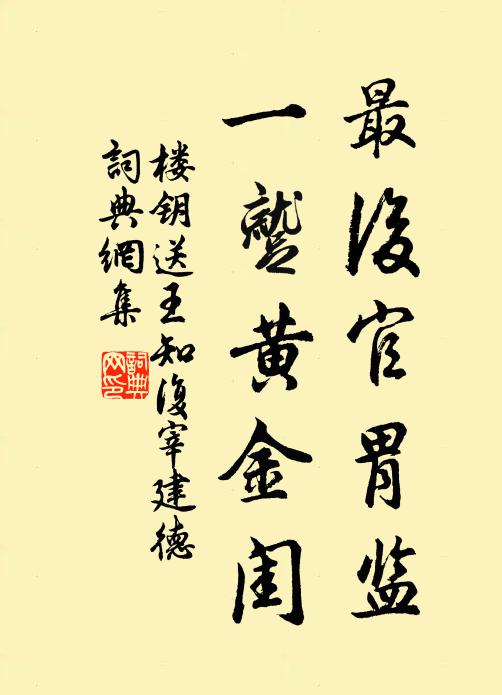 最後官胄监
一蹵黄金閨
楼钥送王知復宰建德
詞典網集
詞典网印